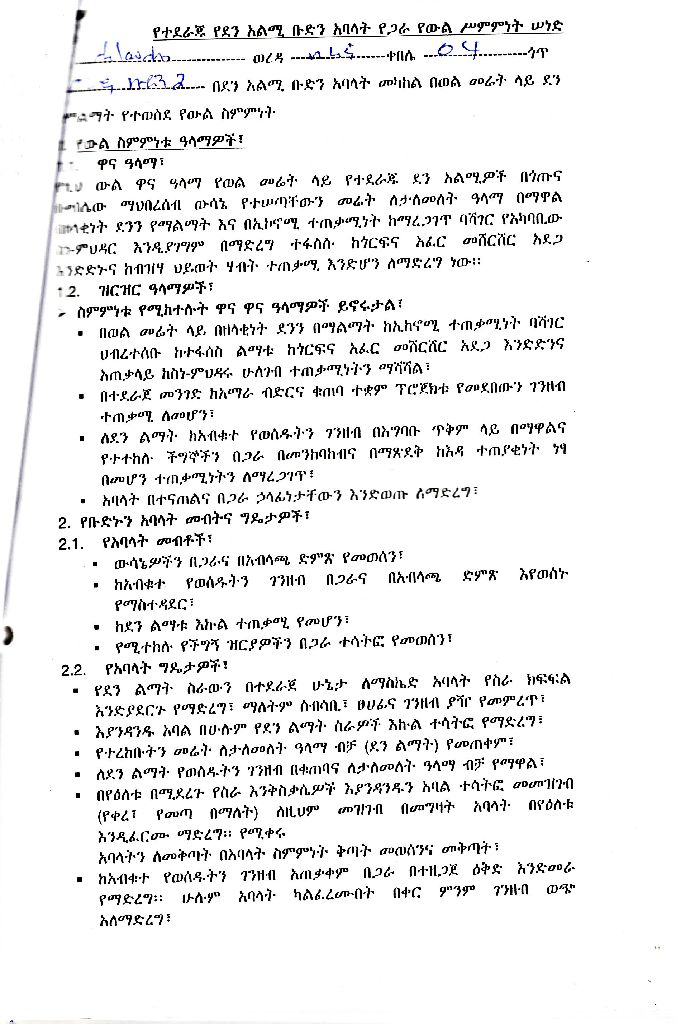 የተደራጁ የደን አልሚ ቡድን አባላት የጋራ የውል ሥምምነት ሠነድ
ወረዳ ቀበሌ 04 ጎጥ
በደን አልሚ ቡድን አባላት መካከል በወል መሬት ላይ ደን
ምልማት የተወሰደ የውል ስምምነት
የውል ስምምነቱ ዓላማዎች፣
1.1. ዋና ዓላማ፣
ውል ዋና ዓላማ የወል መሬት ላይ የተደራጁ ደን አልሚዎች በጎጡና
ማህበረሰብ ውሳኔ የተሠጣቸውን መሬት ለታለመለት ዓላማ በማዋል
ደንን የማልማት እና በኢኮኖሚ ተጠቃሚነት ከማረጋገጥ ባሻገር የአካባቢው
እንዲያገግም በማድረግ ተፋሰሱ ከጎርፍና አፈር መሸርሸር አደጋ
እንድድኑና ከብዝሃ ህይወት ሃብት ተጠቃሚ እንድሆን ለማድረግ ነው።
1.2. ዝርዝር ዓላማዎች፣
➢ ስምምነቱ የሚከተሉት ዋና ዋና ዓላማዎች ይኖሩታል፣
▪ በወል መሬት ላይ በዘላቂነት ደንን በማልማት ከኢኮኖሚ ተጠቃሚነት ባሻገር
ህብረተሰቡ ከተፋሰስ ልማቱ ከጎርፍና አፈር መሸርሸር አደጋ እንድድንና
አጠቃላይ ከስነ-ምህዳሩ ሁለገብ ተጠቃሚነትን ማሻሻል፣
▪ በተደራጀ መንገድ ከአማራ ብድርና ቁጠባ ተቋም ፕሮጀክቱ የመደበውን ገንዘብ
ተጠቃሚ ለመሆን፣
▪ ለደን ልማት ከአብቁተ የወሰዱትን ገንዘብ በአግባቡ ጥቅም ላይ በማዋልና
የተተከሉ ችግኞችን በጋራ በመንከባከብና በማጽደቅ ከእዳ ተጠያቂነት ነፃ
በመሆን ተጠቃሚነትን ለማረጋገጥ፣
▪ አባላት በተናጠልና በጋራ ኃላፊነታቸውን እንድወጡ ለማድረግ፣
2. የቡድኑን አባላት መብትና ግዴታዎች፣
2.1. የአባላት መብቶች፣
▪ ውሳኔዎችን በጋራና በአብላጫ ድምጽ የመወሰን፣
▪ ከአብቁተ የወሰዱትን ገንዘብ በጋራና በአብላጫ ድምጽ እየወሰኑ
የማስተዳደር፣
▪ ከደን ልማቱ እኩል ተጠቃሚ የመሆን፣
▪ የሚተከሉ የችግኝ ዝርያዎችን በጋራ ተሳትፎ የመወሰን፣
2.2. የአባላት ግዴታዎች፣
▪ የደን ልማት ስራውን በተደራጀ ሁኔታ ለማስኬድ አባላት የስራ ክፍፍል
እንድያደርጉ የማድረግ፣ ማለትም ሰብሳቢ፣ ፀሀፊና ገንዘብ ያዥ የመምረጥ፣
▪ እያንዳንዱ አባል በሁሉም የደን ልማት ስራዎች እኩል ተሳትፎ የማድረግ፣
▪ የተረከቡትን መሬት ለታለመለት ዓላማ ብቻ (ደን ልማት) የመጠቀም፣
▪ ለደን ልማት የወሰዱትን ገንዘብ በቁጠባና ለታለመለት ዓላማ ብቻ የማዋል፣
▪ በየዕለቱ በሚደረጉ የስራ እንቅስቃሴዎች እያንዳንዱን አባል ተሳትፎ መመዝገብ
(የቀረ፣ የመጣ በማለት) ለዚህም መዝገብ በመግዛት አባላት በየዕለቱ
እንዲፈርሙ ማድረግ። የሚቀሩ
አባላትን ለመቅጣት በአባላት ስምምነት ቅጣት መወሰንና መቅጣት፣
▪ ከአብቁተ የወሰዱትን ገንዘብ አጠቃቀም በጋራ በተዘጋጀ ዕቅድ እንድመራ
የማድረግ። ሁሉም አባላት ካልፈረሙበት በቀር ምንም ገንዘብ ወጭ
አለማድረግ፣